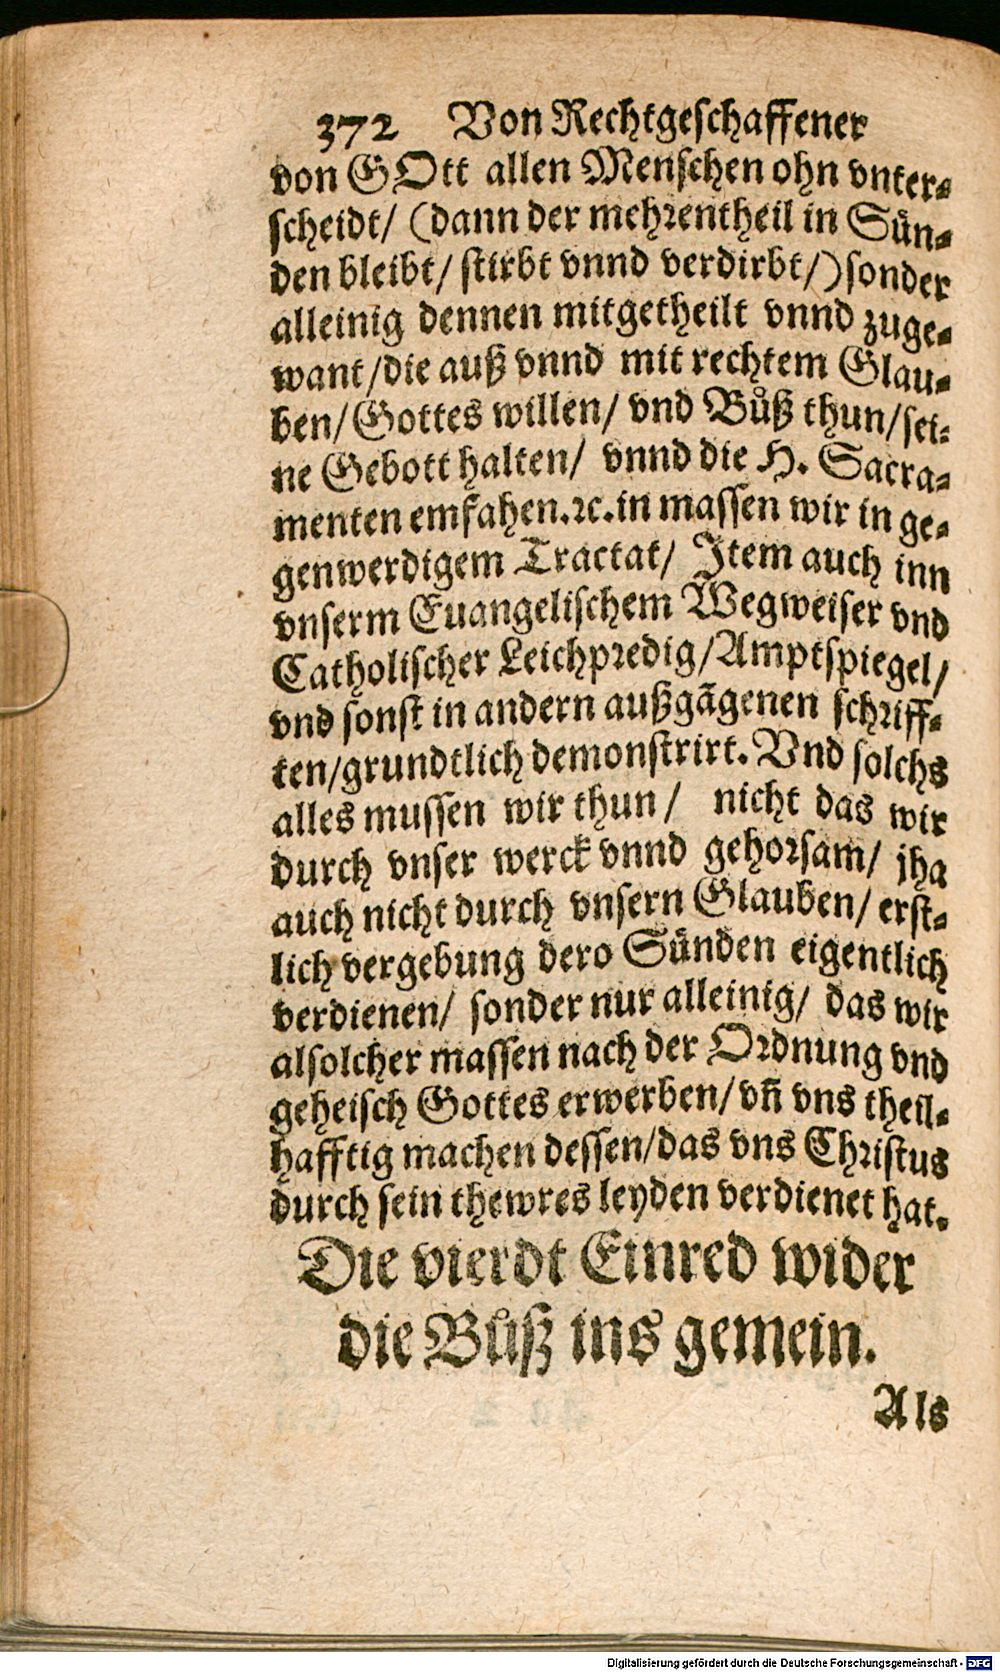 372 Von Rechtgeschaffener
von GOtt allen Menschen ohn vnter-
scheidt/ (dann der mehrentheil in Sün-
den bleibt/ stirbt vnnd verdirbt/) sonder
alleinig dennen mitgetheilt vnnd zuge-
want/die auß vnnd mit rechtem Glau-
ben/Gottes willen/ vnd Bůß thun/sei-
ne Gebott halten/ vnnd die H. Sacra-
menten emfahen.ꝛc.in massen wir in ge-
genwerdigem Tractat/ Item auch inn
vnserm Euangelischem Wegweiser vnd
Catholischer Leichpredig/Amptspiegel/
vnd sonst in andern außgãgenen schriff-
ten/grundtlich demonstrirt. Vnd solchs
alles mussen wir thun/ nicht das wir
durch vnser werck vnnd gehorsam/ jha
auch nicht durch vnsern Glauben/ erst-
lich vergebung dero Sünden eigentlich
verdienen/ sonder nur alleinig/ das wir
alsolcher massen nach der Ordnung vnd
geheisch Gottes erwerben/vñ vns theil-
hafftig machen dessen/das vns Christus
durch sein thewres leyden verdienet hat.
Die vierdt Einred wider
die Bůß ins gemein.
Als
Digitalisierung gefördert durch die Deutsche Forschungsgemeinschaft - DFG